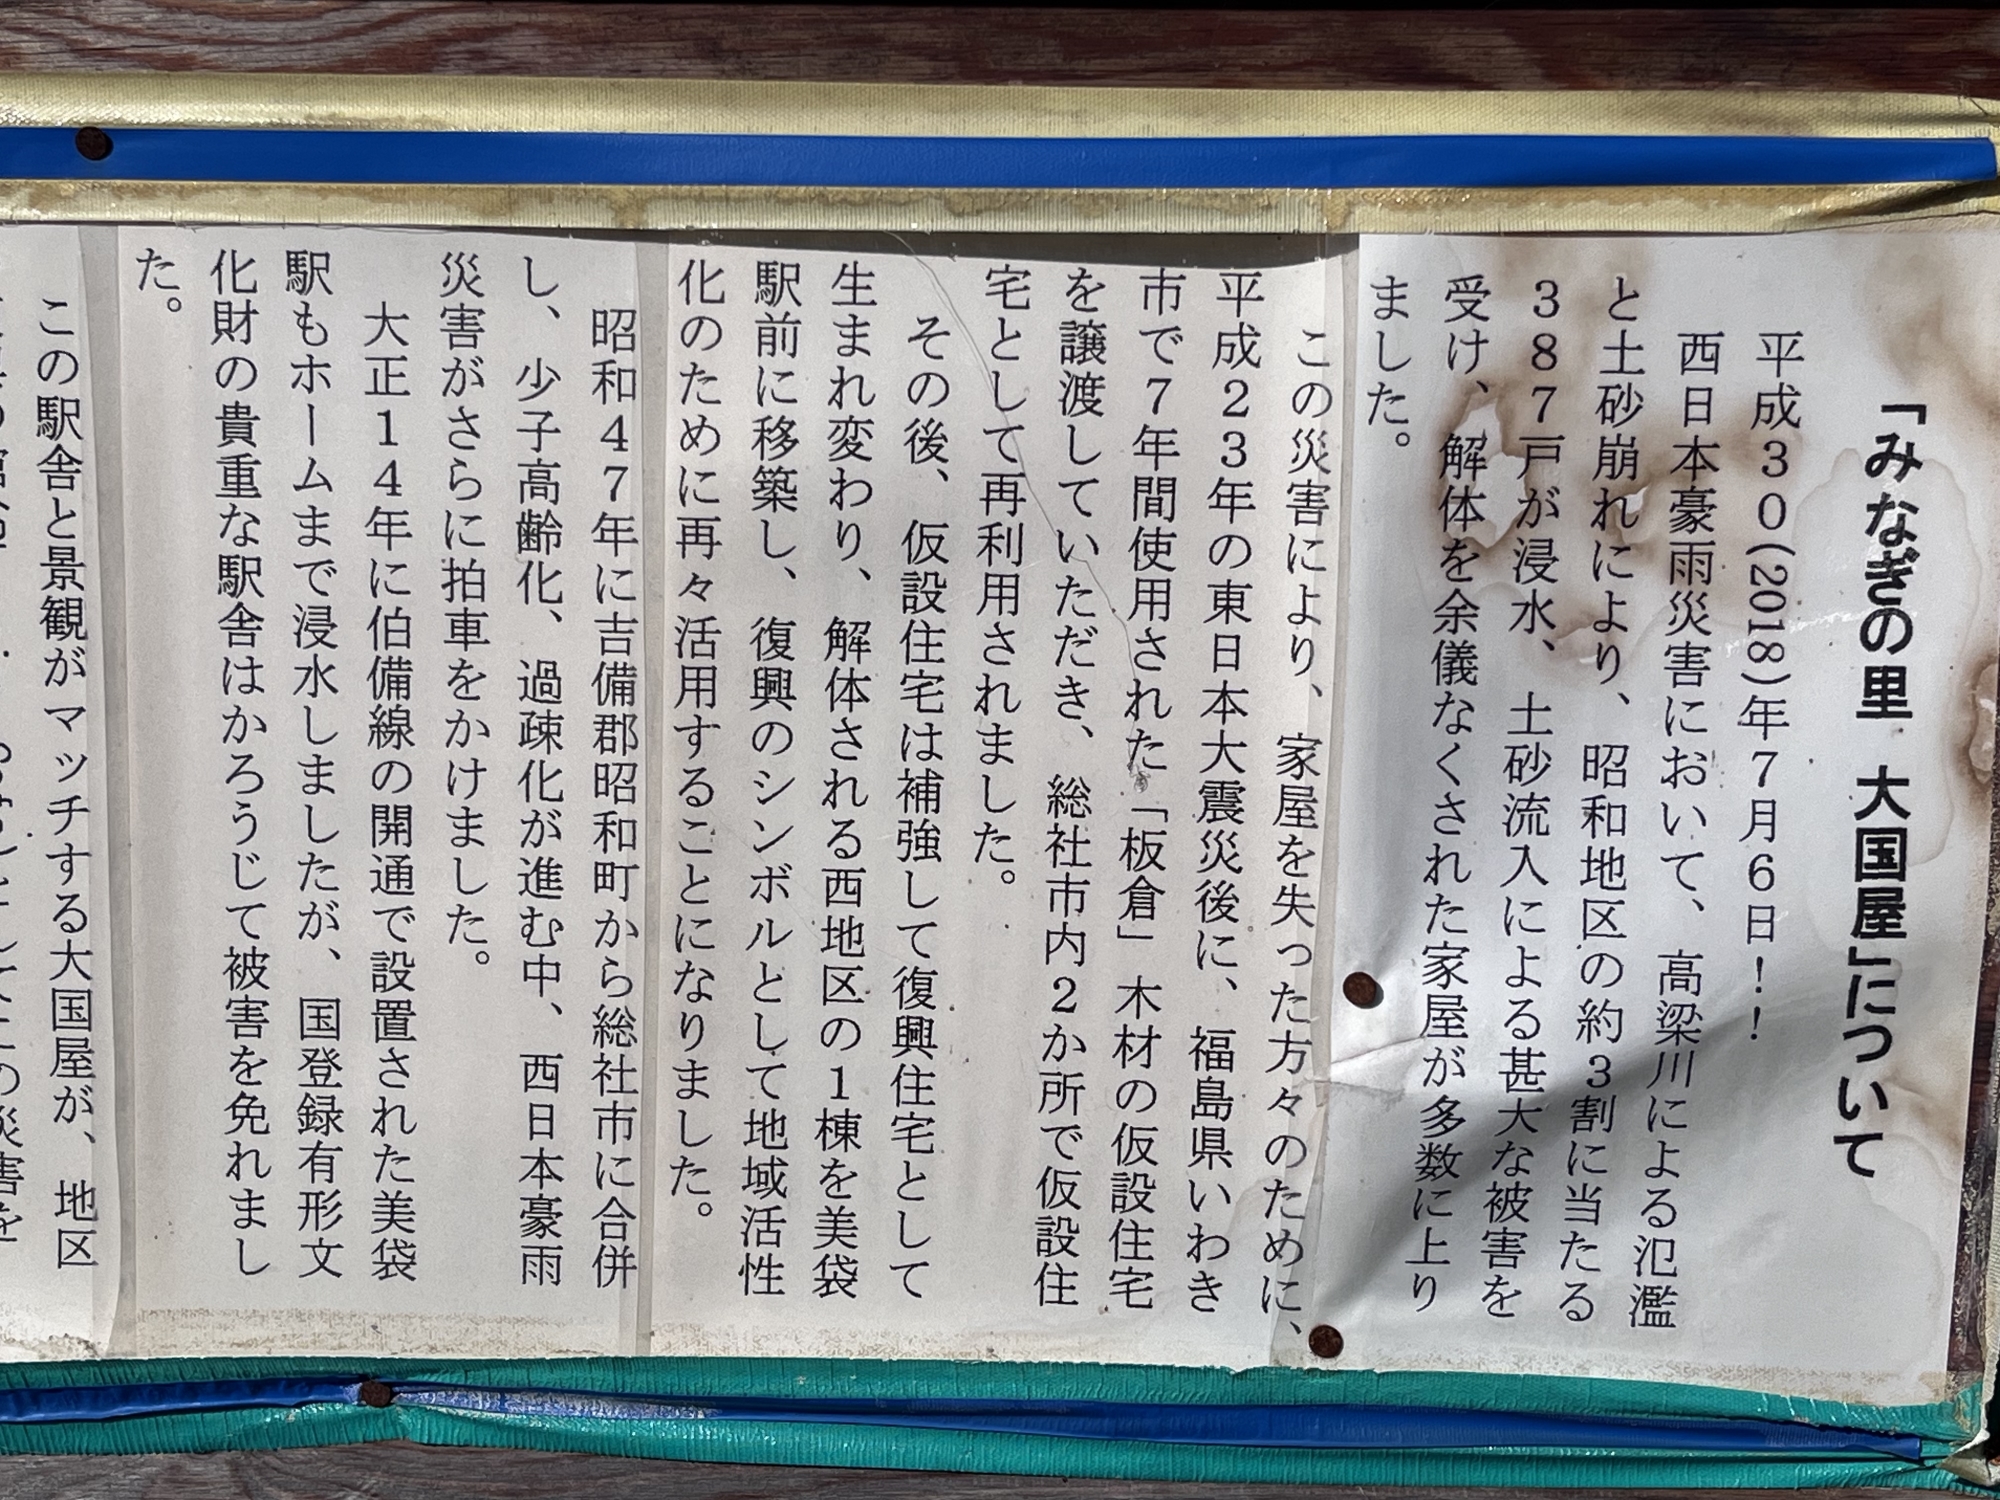 「みなぎの里　大国屋」について
平成３０(2018)年７月６日！！
西日本豪雨災害において、高梁川による氾濫
と土砂崩れにより、昭和地区の約３割に当たる
３８７戸が浸水、土砂流入による甚大な被害を
受け、解体を余儀なくされた家屋が多数に上り
ました。
この災害により、家屋を失った方々のために、
平成２３年の東日本大震災後に、福島県いわき
市で７年間使用された「板倉」木材の仮設住宅
を譲渡していただき、総社市内２か所で仮設住
宅として再利用されました。
その後、仮設住宅は補強して復興住宅として
生まれ変わり、解体される西地区の１棟を美袋
駅前に移築し、復興のシンボルとして地域活性
化のために再々活用することになりました。
昭和４７年に吉備郡昭和町から総社市に合併
し、少子高齢化、過疎化が進む中、西日本豪雨
災害がさらに拍車をかけました。
大正１４年に伯備線の開通で設置された美袋
駅もホームまで浸水しましたが、国登録有形文
化財の貴重な駅舎はかろうじて被害を免れまし
た。
この駅舎と景観がマッチする大国屋が、地区